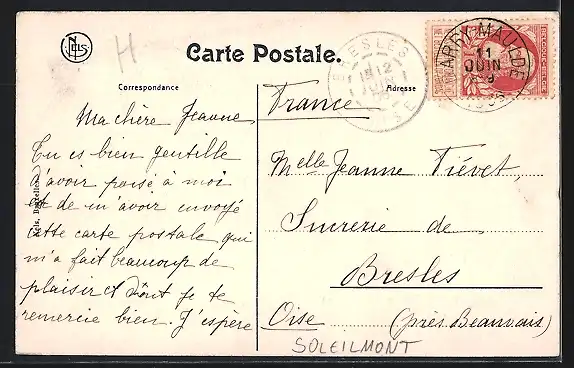 NELS
H
Carte Postale.
BRESLES
12
JUIN
OISE
BARRY-MAULDE
11
JUIN
9
Correspondance
Adresse
Ma chère Jeanne
Tu es bien gentille
d'avoir pensé à moi
et de m'avoir envoyé
cette carte postale qui
m'a fait beaucoup de
plaisir et dont je te
remercie bien. J'espère
Nels, Bruxelles
France
Melle Jeanne Tiévet,
Sucrerie de
Bresles
Oise (près Beauvais)
SOLEILMONT